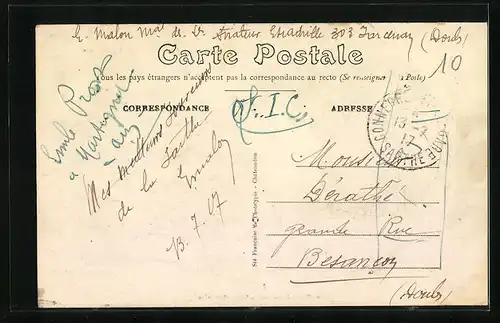 E. Malon Mal de Lr Aviateur Escadrille 303 Farcenay (Doubs)
Carte Postale
Tous les pays étrangers n'acceptent pas la correspondance au recto (Se renseigner à la Poste)
CORRESPONDANCE
ADRESSE
10
F.I.C.
Emile
à
Mes meilleurs souvenirs
de la Sarthe
E malon
13.7.17
CONNERRÉ
SARTHE
Monsieur
Dérathé
grande Rue
Besançon
(Doubs)
Sté Française de Phototypie - Châteaudun